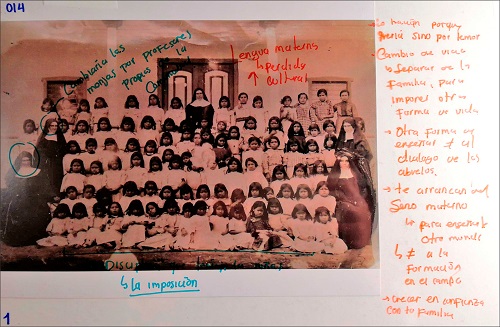 014
Cambiaría las
monjas por profesores
propios
Lengua materna
↳ Perdida
↑ cultural
Discip
↳ la imposición
1
Lo hacían porque
sino por temor
- Cambio de vida
↳ Separar de la
familia, para
imponer otra
forma de vida
↳ Otra forma de
enseñar ≠ el
dialogo de los
abuelos.
→ te arrancan del
Seno materno
↳ para enseñarte
otro mundo
↳ ≠ a la
formación
en el campo
→ Crecer en confianza
con tu familia